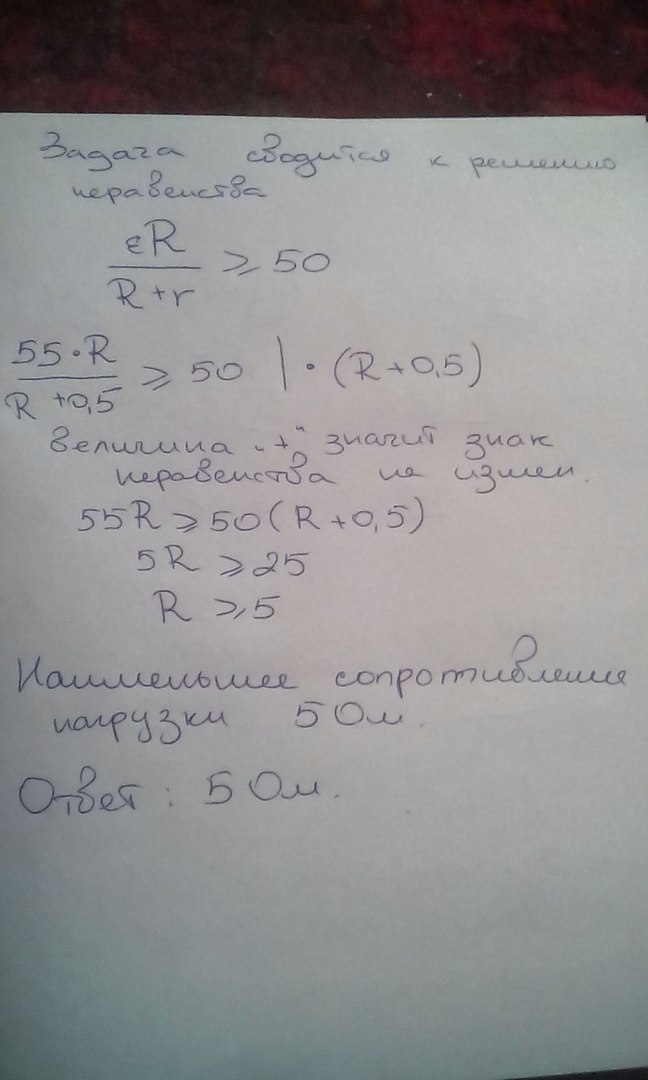 Задача сводится к решению
неравенства
εR
R+r
≥ 50
55·R
R+0,5
≥ 50 | · (R+0,5)
величина „+“ значит знак
неравенства не измен.
55R ≥ 50(R+0,5)
5R ≥ 25
R ≥ 5
Наименьшее сопротивление
нагрузки 5 Ом.
Ответ: 5 Ом.